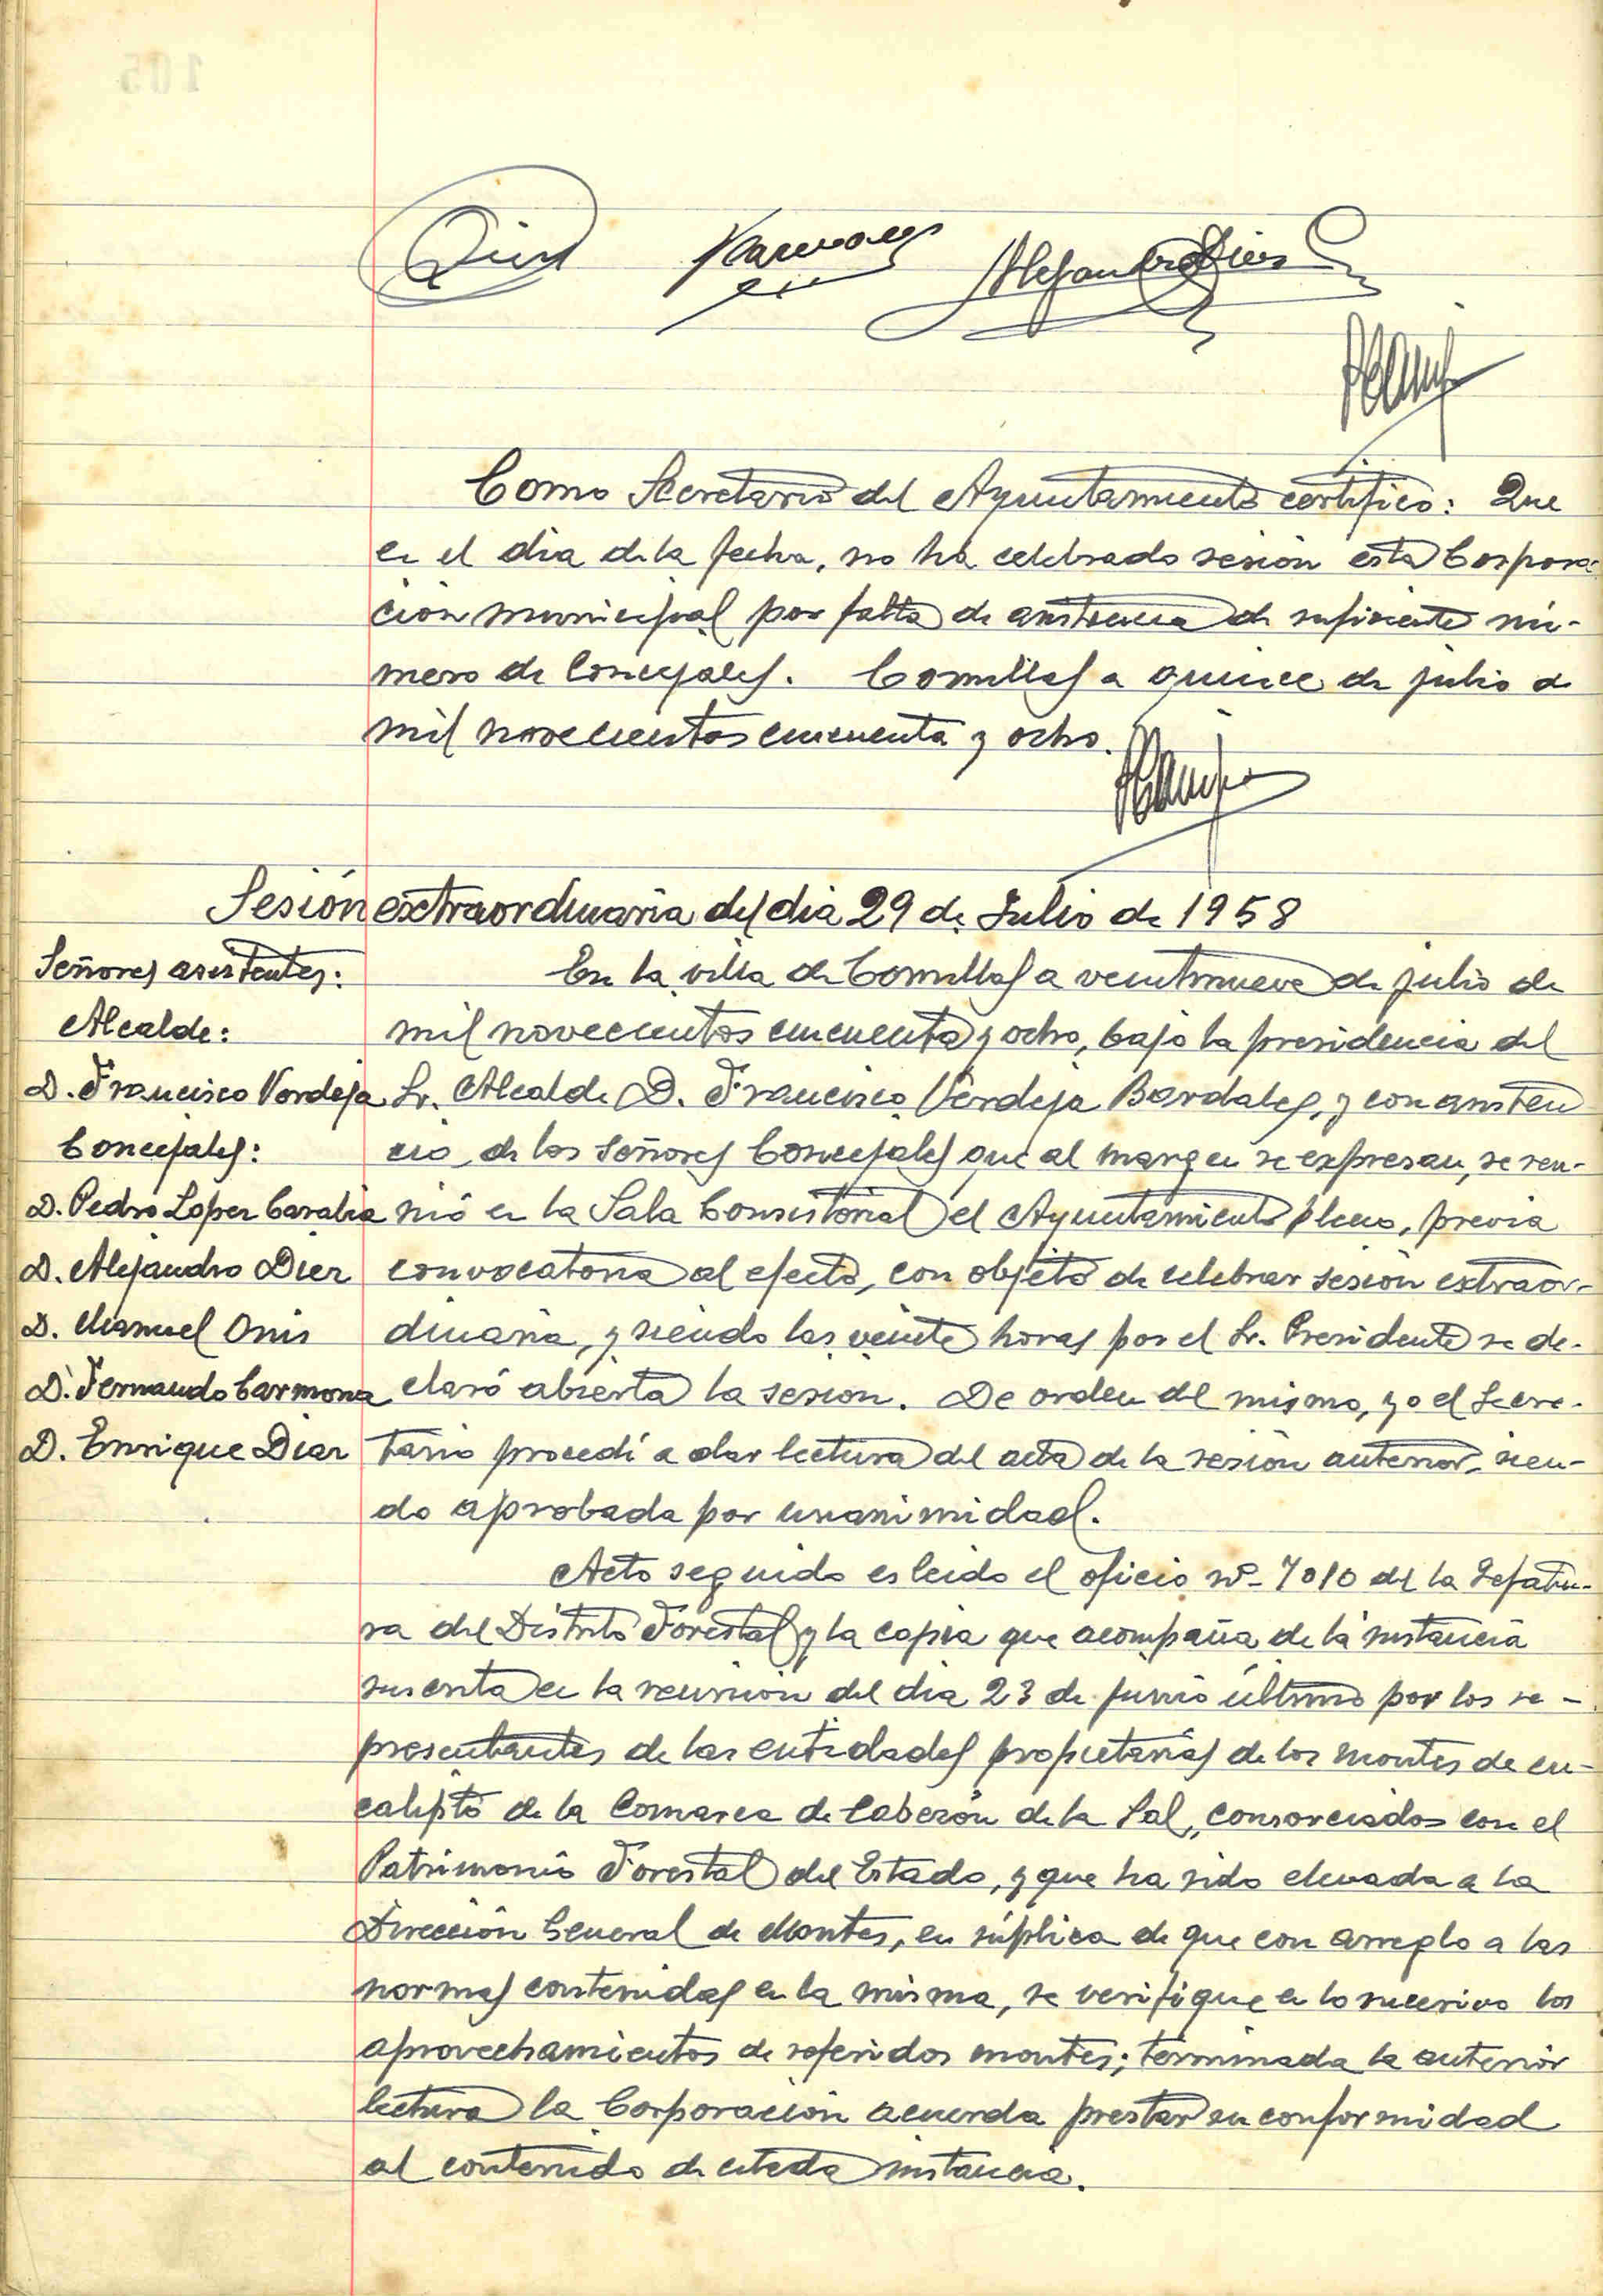 Alejandro Diez
Como Secretario del Ayuntamiento certifico: Que
en el dia de la fecha, no ha celebrado sesión esta Corpora-
ción municipal por falta de asistencia de suficiente nú-
mero de Concejales. Comillas a quince de julio de
mil novecientos cincuenta y ocho.
Sesión extraordinaria del dia 29 de Julio de 1958
Señores asistentes:
Alcalde:
D. Francisco Verdeja
Concejales:
D. Pedro Lopez
D. Alejandro Diez
D. Manuel Onis
D. Fernando Carmona
D. Enrique Diaz
En la villa de Comillas a veintinueve de julio de
mil novecientos cincuenta y ocho, bajo la presidencia del
Sr. Alcalde D. Francisco Verdeja Bardales, y con asisten
cia de los Señores Concejales que al margen se expresan, se reu-
nió en la Sala Consistorial el Ayuntamiento pleno, previa
convocatoria al efecto, con objeto de celebrar sesión extraor-
dinaria, y siendo las veinte horas por el Sr. Presidente se de-
claró abierta la sesión. De orden del mismo, yo el Secre-
tario procedí a dar lectura del acta de la sesión anterior, sien-
do aprobada por unanimidad.
Acto seguido es leido el oficio nº- 7010 de la Jefatu-
ra del Distrito Forestal y la copia que acompaña de la instancia
suscrita en la reunión del dia 23 de junio último por los re-
presentantes de las entidades propietarias de los montes de eu-
calipto de la Comarca de Cabezón de la Sal, consorciados con el
Patrimonio Forestal del Estado, y que ha sido elevada a la
Dirección General de Montes, en súplica de que con arreglo a las
normas contenidas en la misma, se verifique en lo sucesivo los
aprovechamientos de referidos montes; terminada la anterior
lectura la Corporación acuerda prestar su conformidad
al contenido de citada instancia.